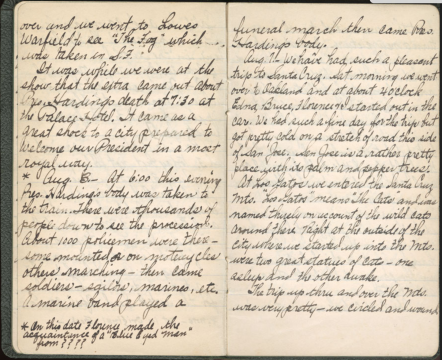 over and we went to Loews
Warfield to see "The Fog" which
was taken in S.F.
It was while we were at the
show that the extra came out about
Pres. Harding's death at 7:30 at
the Palace Hotel. It came as a
great shock to a city prepared to
welcome our President in a most
royal way.
* Aug. 3 – At 6:00 this evening
Pres. Harding's body was taken to
the train. There were thousands of
people down to see the procession.
About 1000 policemen were there –
some mounted or on motorcycles
others marching – then came
soldiers – sailors, marines, etc.
A marine band played a
* On this date Florence made the
acquaintance of a "Blue Eyed man"
from ????
funeral march then came Pres.
Hardings body.
Aug. We have had such a pleasant
trip to Santa Cruz. Sat. morning we went
over to Oakland and at about 4 o'clock
Edna, Bruce, Florence, started out in the
car. We had such a fine day for the trip but
got pretty cold on a stretch of road this side
of San Jose. San Jose is a rather pretty
place with its palm and pepper trees.
At Los Gatos we entered the Santa Cruz
Mts. Los Gatos means the Cats and was
named thusly on account of the wild cats
around there. Right at the outside of the
city where we started up into the Mts.
were two great statues of Cats – one
asleep and the other awake.
The trip up thru and over the Mts.
was very pretty – we circled and wound